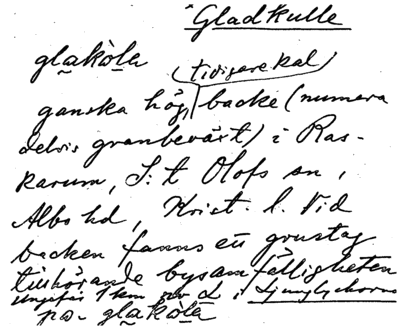 Gladkulle
glakòla
(tidigare kal
ganska hög, backe (numera
delvis granbeväxt) i Ras-
karum, S:t Olofs sn,
Albo hd, Krist. l. Vid
backen fanns ett grustag
tillhörande bysamfälligheten
ungefär 1 km nv d i Ljunglyckorna
på glakòla